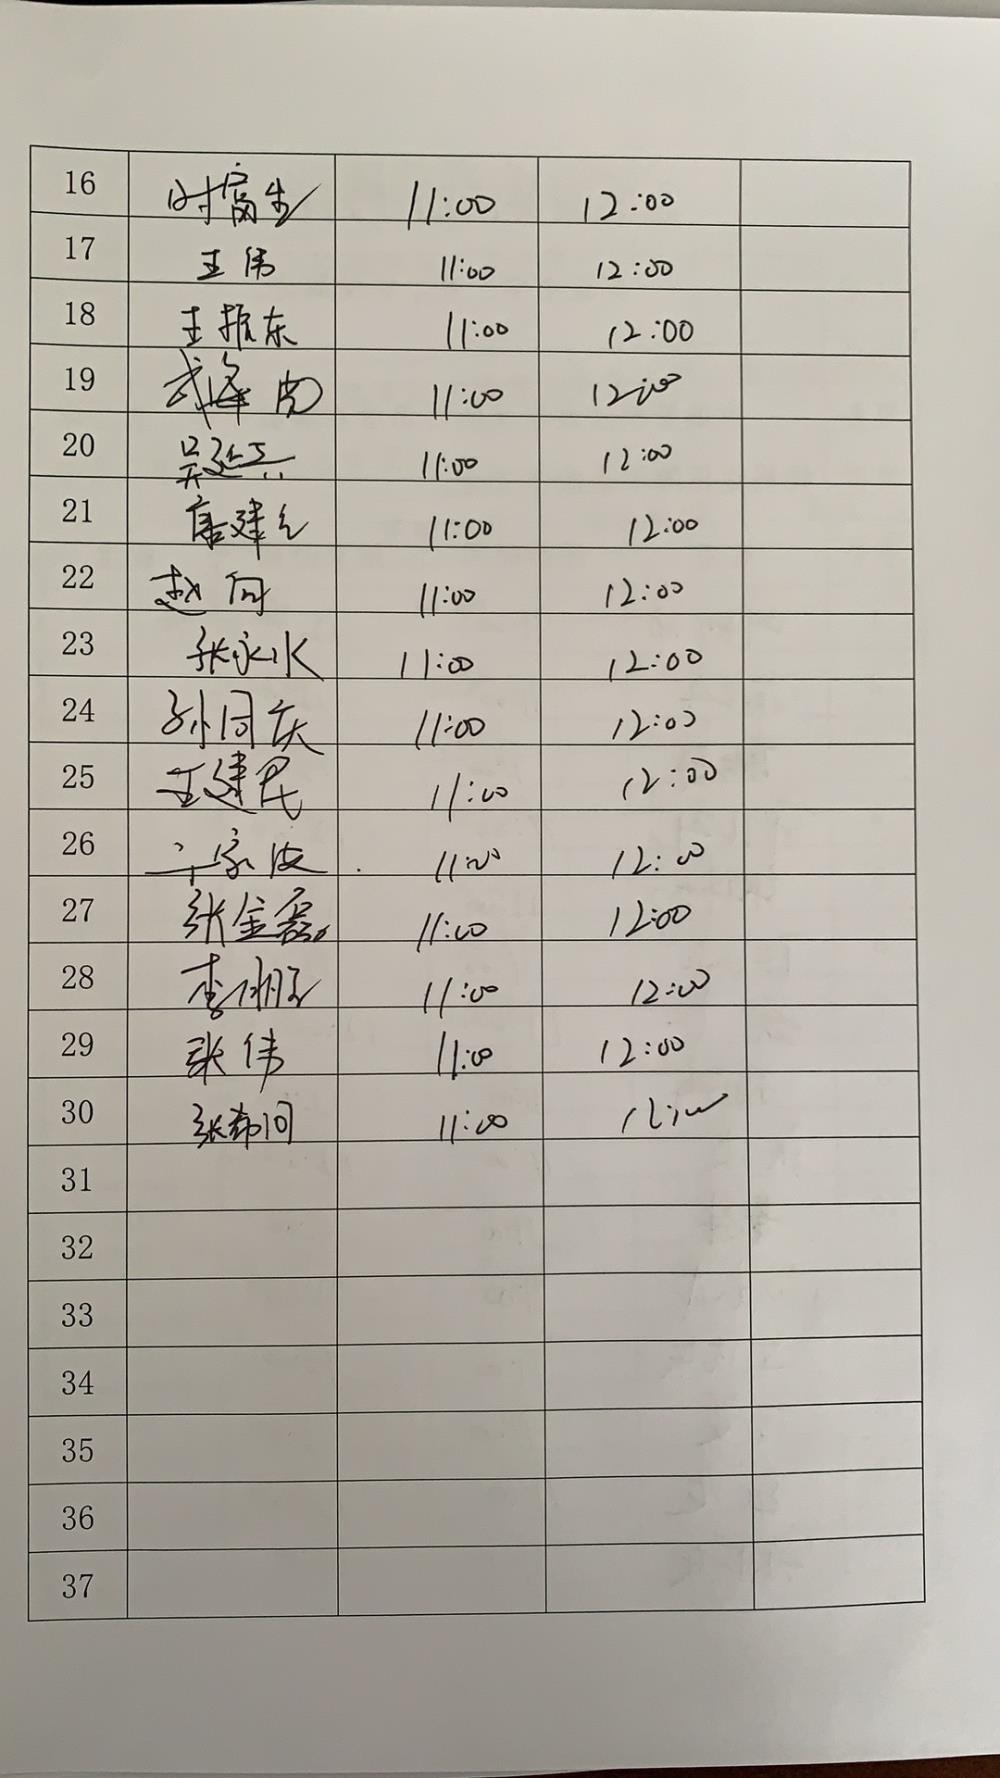 16 时富生 11:00 12:00
17 王伟 11:00 12:00
18 王振东 11:00 12:00
19 11:00 12:00
20 吴延兵 11:00 12:00
21 唐建 11:00 12:00
22 赵向 11:00 12:00
23 张永水 11:00 12:00
24 孙同庆 11:00 12:00
25 王建民 11:00 12:00
26 家波 11:00 12:00
27 张金磊 11:00 12:00
28 李 11:00 12:00
29 张伟 11:00 12:00
30 张 11:00 12:00
31
32
33
34
35
36
37